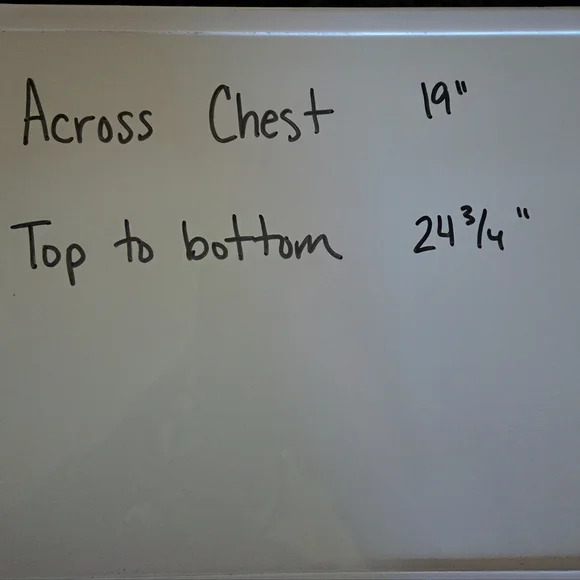 Across Chest 19"
Top to bottom 24 3/4"